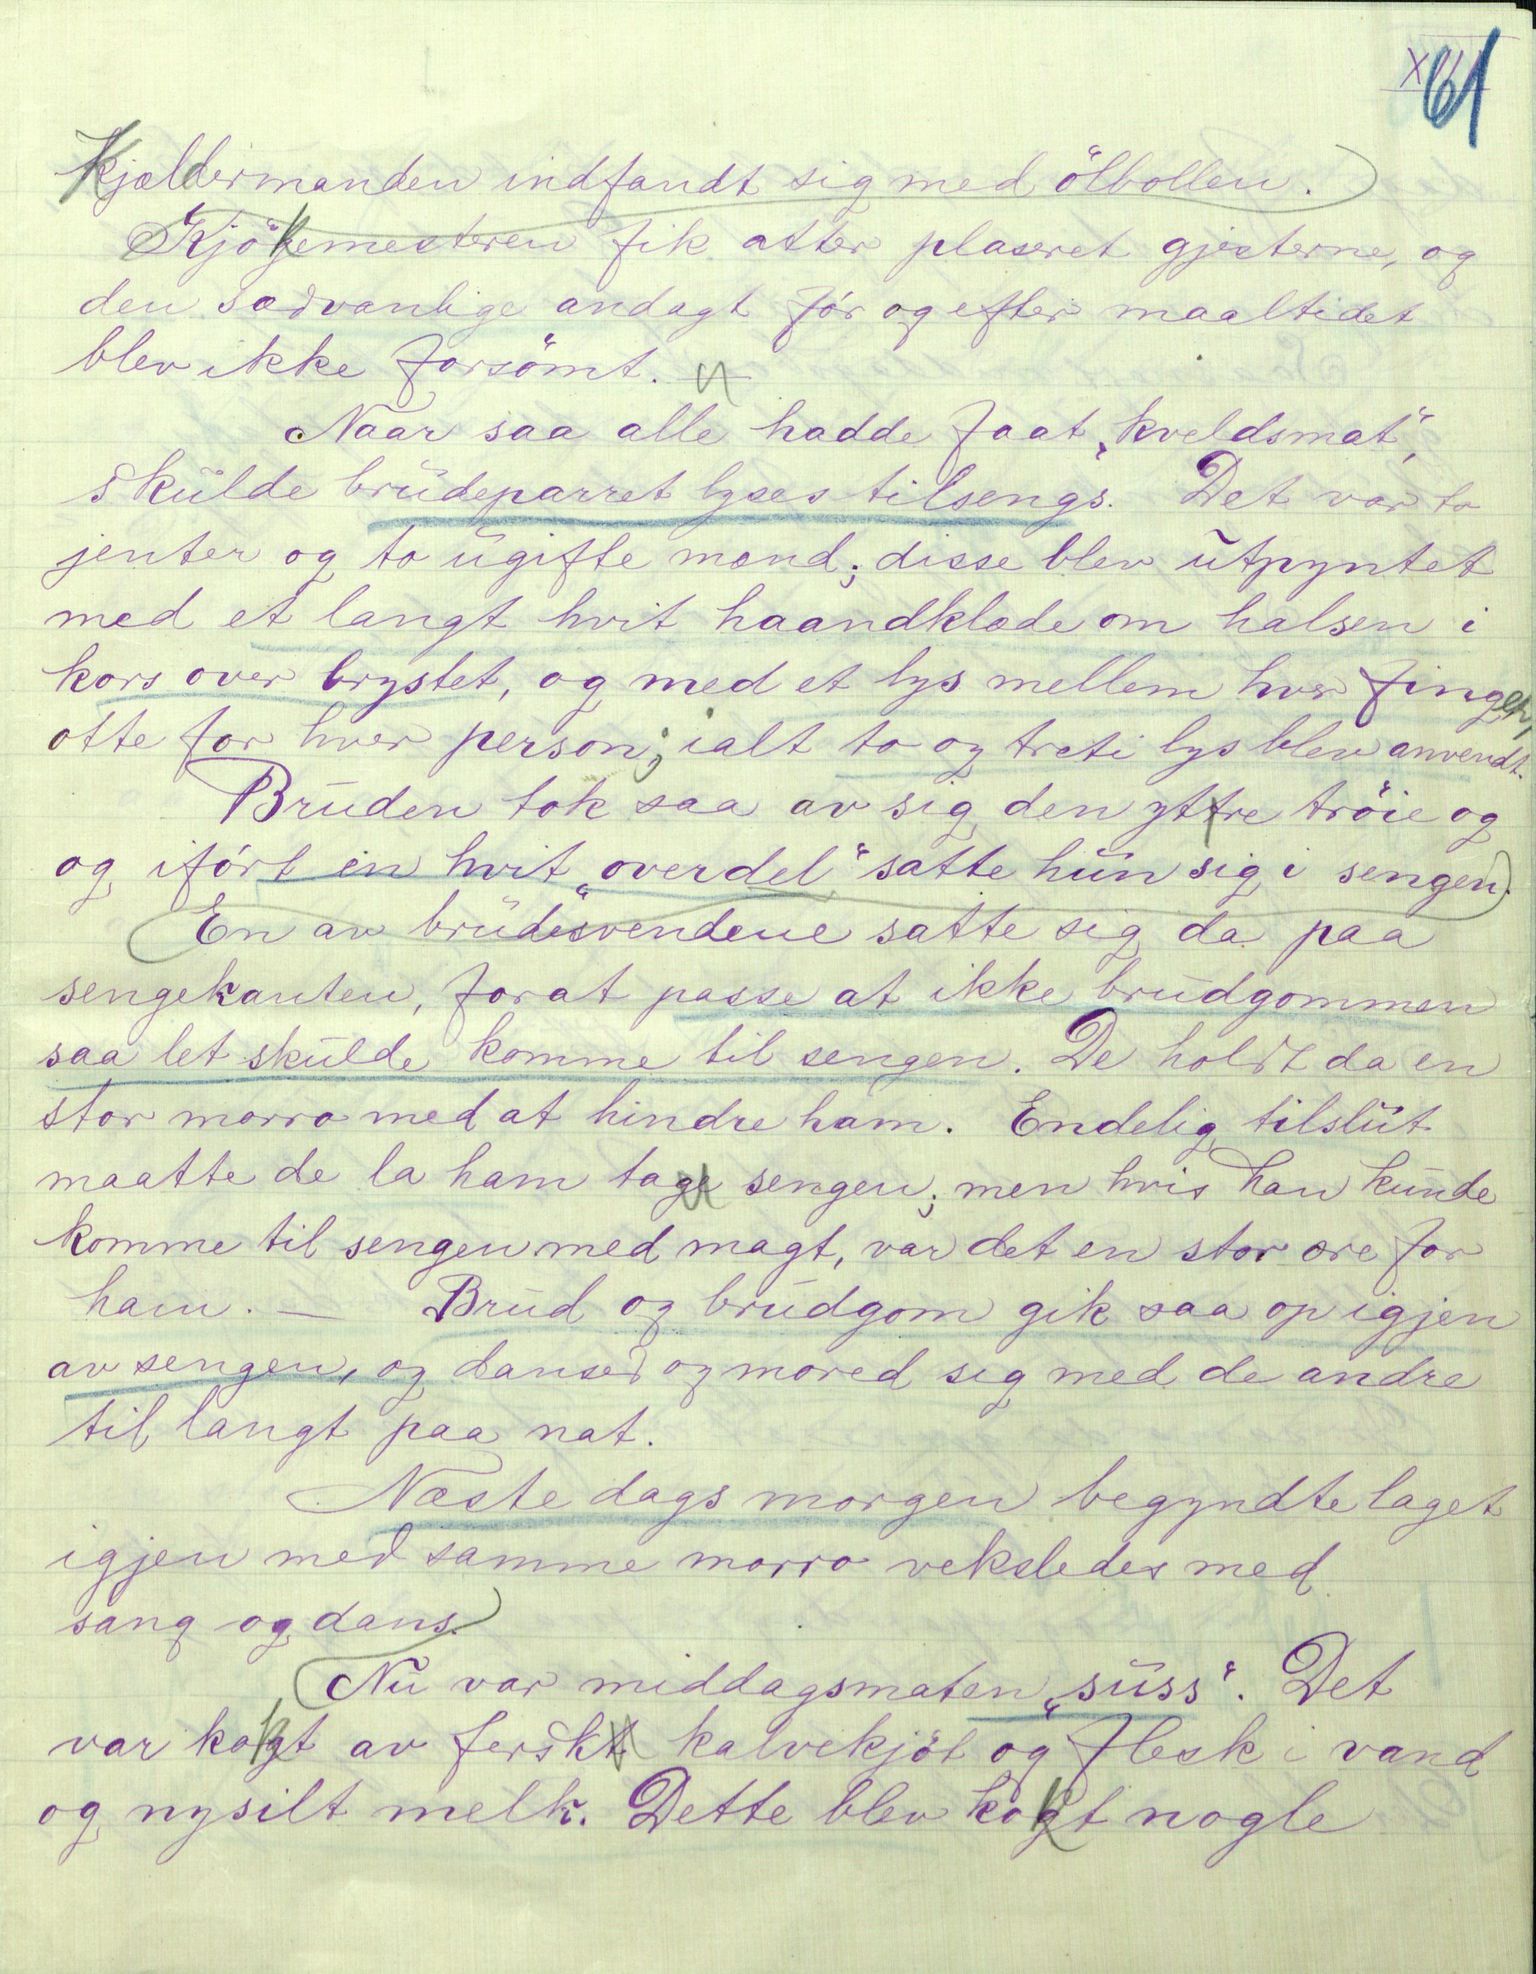 61
Kjældermanden indfandt sig med ölbollen.
Kjökemesteren fik atter plaseret gjesterne, og
den sædvanlige andagt för og efter maaltidet
blev ikke forsömt. —
Naar saa alle hadde faat „kveldsmat“,
skulde brudeparret lyses tilsengs. Det var to
jenter og to ugifte mænd; disse blev utpyntet
med et langt hvit haandklæde om halsen i
kors over brystet, og med et lys mellem hver finger,
otte for hver person; ialt to og treti lys blev anvendt.
Bruden tok saa av sig den yttre tröie og
og ifört en hvit „overdel“ satte hun sig i sengen.
En av brudesvendene satte sig da paa
sengekanten, forat passe at ikke brudgommen
saa let skulde komme til sengen. De holdt da en
stor morro med at hindre ham. Endelig tilslut
maatte de la ham tage sengen; men hvis han kunde
komme til sengen med magt, var det en stor ære for
ham. — Brud og brudgom gik saa op igjen
av sengen, og danset og mored sig med de andre
til langt paa nat.
Næste dags morgen begyndte laget
igjen med samme morro veksledes med
sang og dans.
Nu var middagsmaten „suss“. Det
var kokt av ferskt kalvekjöt og flesk i vand
og nysilt melk. Dette blev kokt nogle